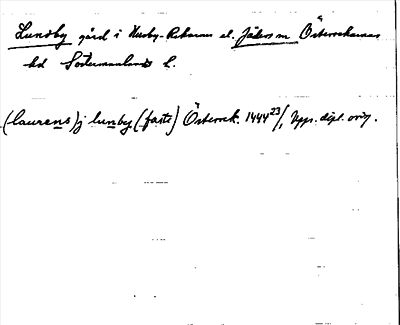 Lundby gård i Husby-Rekarne el. Jäders sn Österrekarnes
hd Södermanlands l.
(laurens) j lunby (faste) Österrek. 1444 23/1 Upps. dipl. orig.